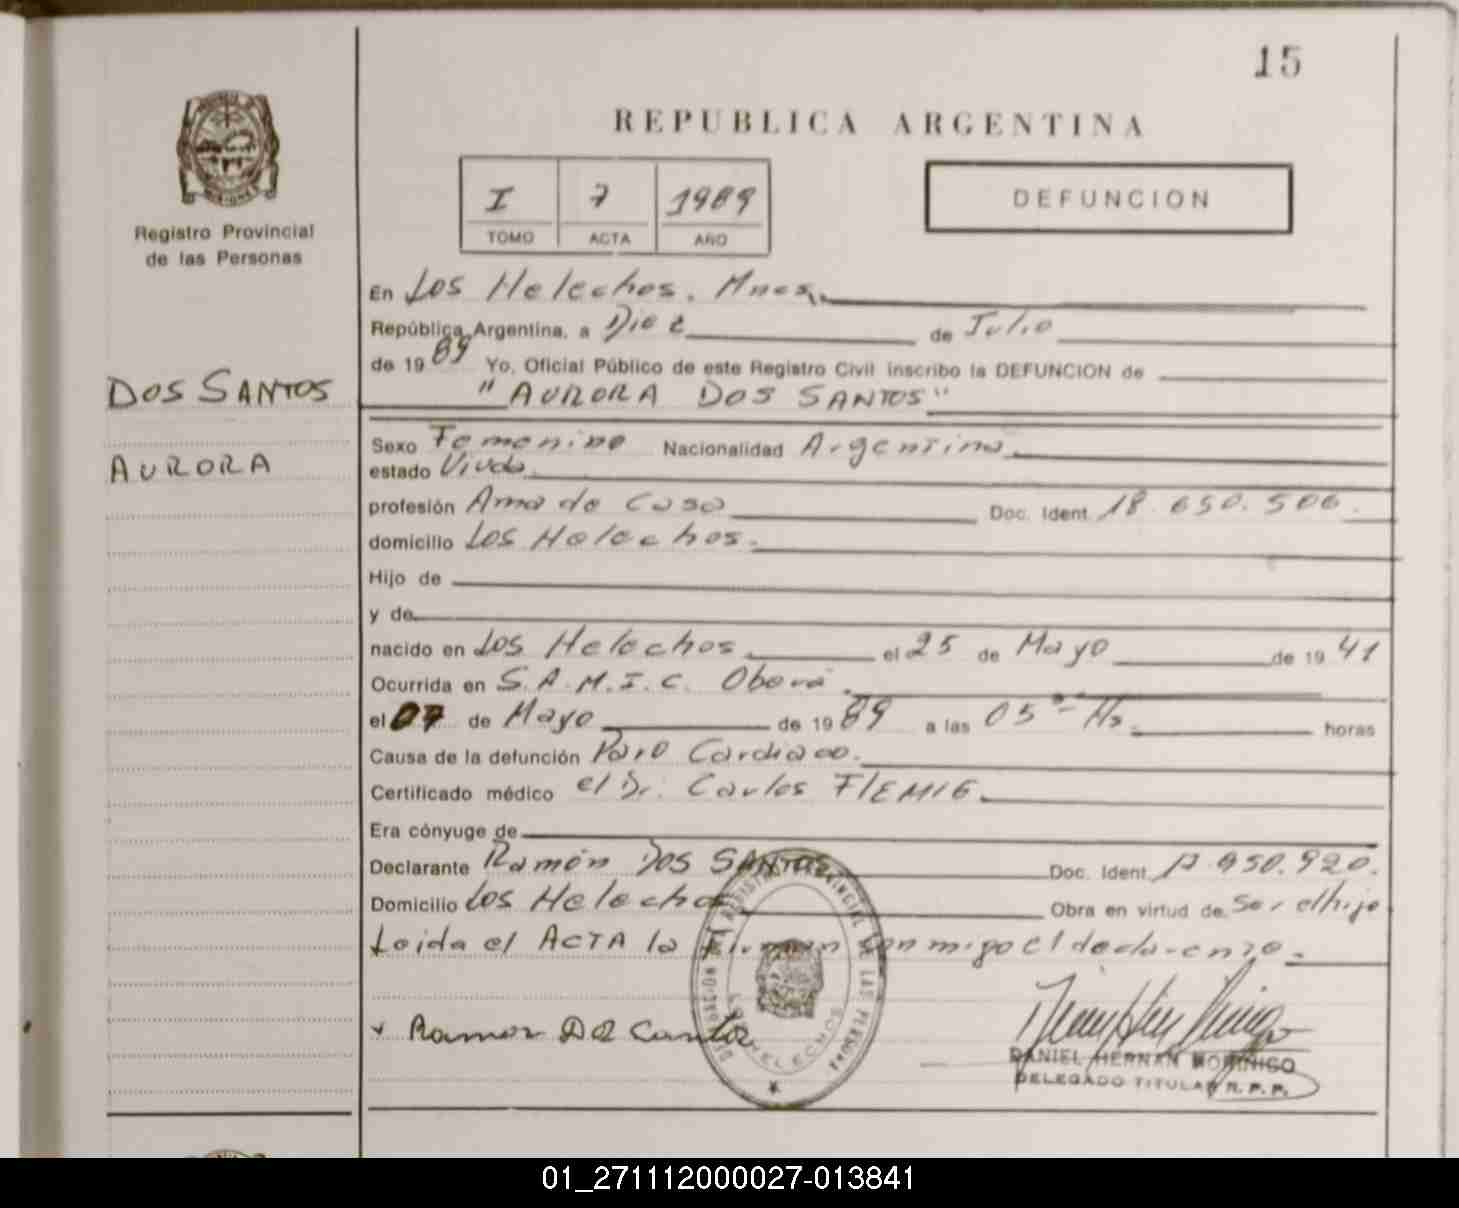 15
REPUBLICA ARGENTINA
I 7 1989
TOMO ACTA AÑO
DEFUNCION
Registro Provincial
de las Personas
DOS SANTOS
AURORA
En Los Helechos. Mnes.
República Argentina, a Diez de Julio
de 1989 Yo, Oficial Público de este Registro Civil inscribo la DEFUNCION de
"AURORA DOS SANTOS"
Sexo Femenino Nacionalidad Argentina
estado Viuda
profesión Ama de Casa Doc. Ident. 18.650.506.
domicilio Los Helechos.
Hijo de
y de
nacido en Los Helechos el 25 de Mayo de 1941
Ocurrida en S.A.M.I.C. Oberá.
el 07 de Mayo de 1989 a las 05 Hs. horas
Causa de la defunción Paro Cardiaco.
Certificado médico el Dr. Carlos
Era cónyuge de
Declarante Ramón DOS SANTOS Doc. Ident.
Domicilio Los Helechos Obra en virtud de Ser el hijo
Leida el ACTA la firman conmigo el declarante.
Ramon
REGISTRO PROVINCIAL DE LAS PERSONAS
LOS HELECHOS
DANIEL HERNAN MORINIGO
DELEGADO TITULAR R.P.P.
01_271112000027-013841